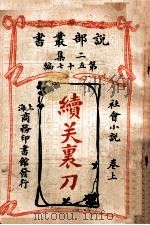 説部叢書
二集
第五十七編
社會小説
卷上
續笑裏刀
上海
商務印書館發行